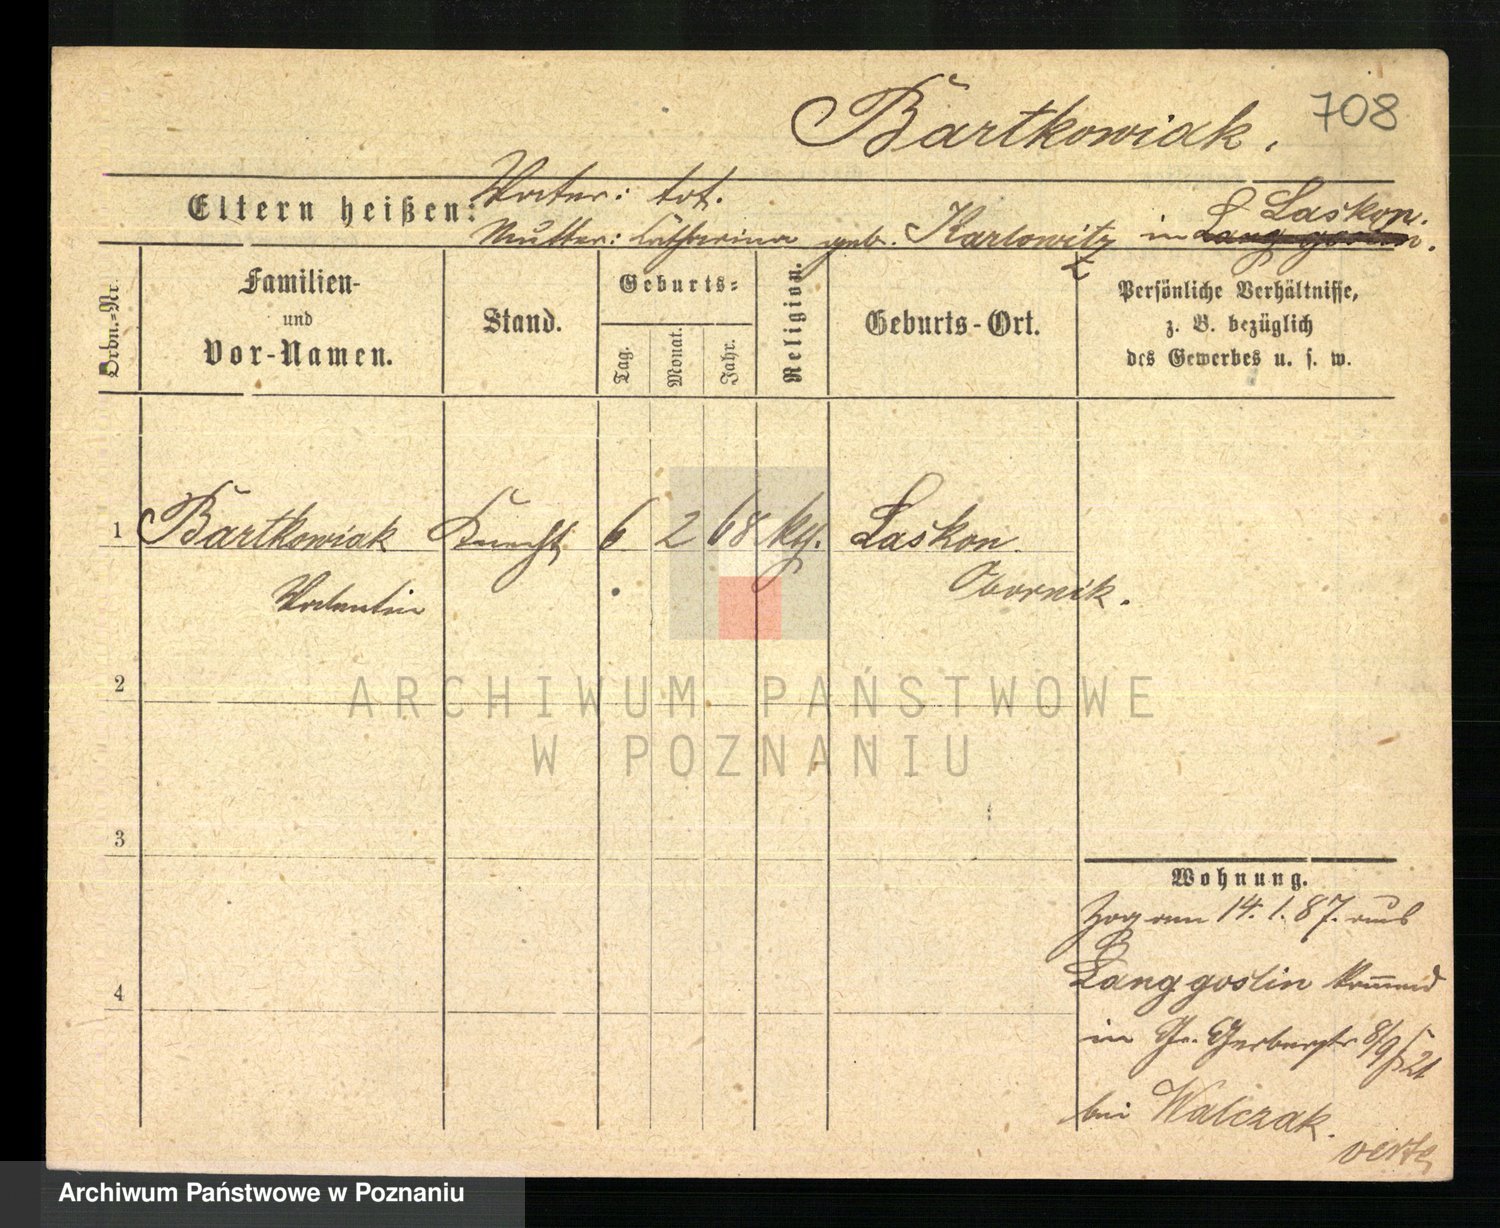 708
Bartkowiak.
Eltern heißen:
Vater: tot.
Laskon.
Mutter: Catharina geb. Karlowitz in Lang goslin.
Ordn.-Nr.
Familien-
und
Vor-Namen.
Stand.
Geburts-
Tag.
Monat.
Jahr.
Religion.
Geburts-Ort.
Persönliche Verhältnisse,
z. B. bezüglich
des Gewerbes u. s. w.
1 Bartkowiak Knecht 6 2 68 kg. Laskon.
Valentin Obornik.
2
3
4
Wohnung.
Zog am 14. 1. 87. aus
Lang goslin
in Gr. Gerberstr. 8/9
bei Walczak.
verte
ARCHIWUM PAŃSTWOWE
W POZNANIU
Archiwum Państwowe w Poznaniu